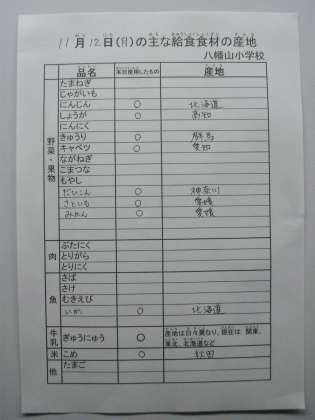 11月12日(月)の主な給食食材の産地
八幡山小学校
品名 本日使用したもの 産地
野菜・果物
たまねぎ
じゃがいも
にんじん ○ 北海道
しょうが ○ 高知
にんにく
きゅうり ○ 群馬
キャベツ ○ 愛知
ながねぎ
こまつな
もやし
だいこん ○ 神奈川
さといも ○ 愛媛
みかん ○ 愛媛
肉
ぶたにく
とりがら
とりにく
魚
さば
さけ
むきえび
いか ○ 北海道
牛乳 ぎゅうにゅう ○ 産地は日々異なり、現在は 関東、東北、北海道など
米 こめ ○ 秋田
他 たまご